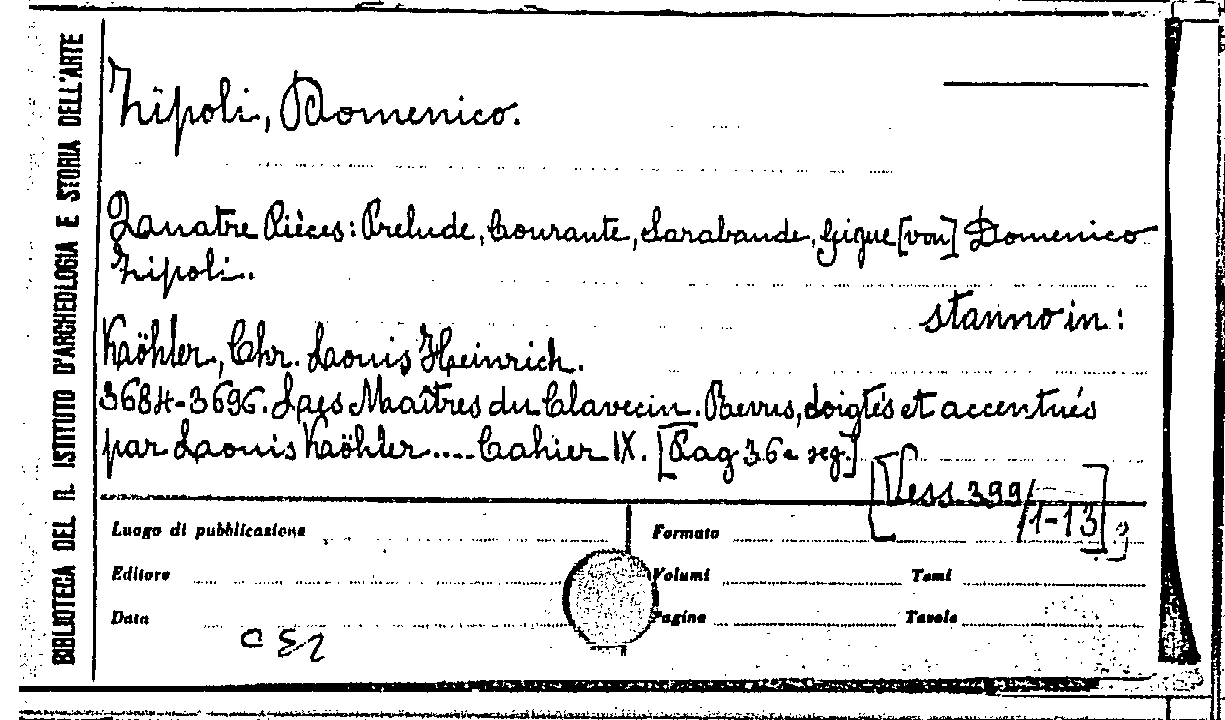 BIBLIOTECA DEL R. ISTITUTO D'ARCHEOLOGIA E STORIA DELL'ARTE
Zipoli, Domenico.
Quatre Pièces: Prelude, Courante, Sarabande, Gigue [von] Domenico
Zipoli.
stanno in:
Köhler, Chr. Louis Heinrich.
3684-3696. Les Maîtres du Clavecin. Revus, doigtés et accentués
par Louis Köhler.... Cahier IX. [Pag 36 e seg.]
[Vess. 399/
/1-13]
Luogo di pubblicazione
Formato
Editore
Volumi
Tomi
Data
Pagine
Tavole